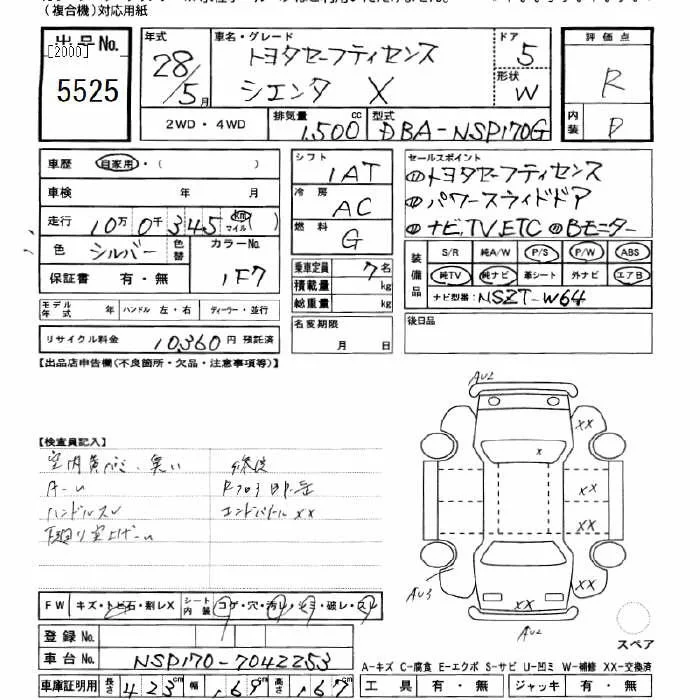 (複合機)対応用紙
出品No.
[2000]
5525
年式
28/5月
車名・グレード
トヨタセーフティセンス
シエンタ X
ドア
5
形状
W
評価点
R
内装
D
2WD・4WD
排気量
1,500 cc
型式
DBA-NSP170G
車歴 自家用・( )
車検 年 月
走行 10万0千345 km マイル ( )
色 シルバー 色替
カラーNo.
1F7
保証書 有・無
モデル年式
ハンドル 左・右
ディーラー・並行
リサイクル料金 10,360円 預託済
シフト
1AT
冷房
AC
燃料
G
乗車定員 7名
積載量 kg
総重量 kg
名変期限
月 日
セールスポイント
トヨタセーフティセンス
パワースライドドア
ナビ,TV,ETC Bモニター
装備品
S/R 純A/W P/S P/W ABS
純TV 純ナビ 革シート 外ナビ エアB
ナビ型番: NSZT-W64
後日品
【出品店申告欄(不良箇所・欠品・注意事項等)】
【検査員記入】
ハンドルスレ
AU2
XX
X
XX
XX
XX
AU3
XX
AU2
スペア
FW キズ・トビ石・刺レX
シート内装 コゲ・穴・汚レ・シミ・破レ・スレ
登録No.
車台No. NSP170-7042253
車庫証明用 長さ 423cm 幅 169cm 高さ 167cm
A-キズ C-腐食 E-エクボ S-サビ U-凹ミ W-補修 XX-交換済
工具 有・無 ジャッキ 有・無